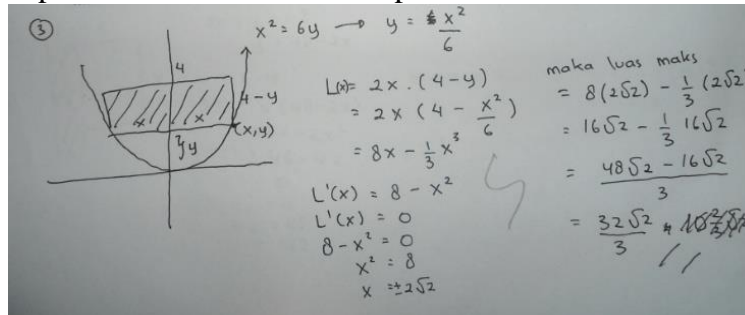 ③
x² = 6y → y = x²/6
4
4-y
x x
(x,y)
y
L(x) = 2x . (4-y)
= 2x (4 - x²/6)
= 8x - 1/3 x³
L'(x) = 8 - x²
L'(x) = 0
8 - x² = 0
x² = 8
x = ±2√2
maka luas maks
= 8(2√2) - 1/3 (2√2
= 16√2 - 1/3 16√2
= 48√2 - 16√2 / 3
= 32√2 / 3